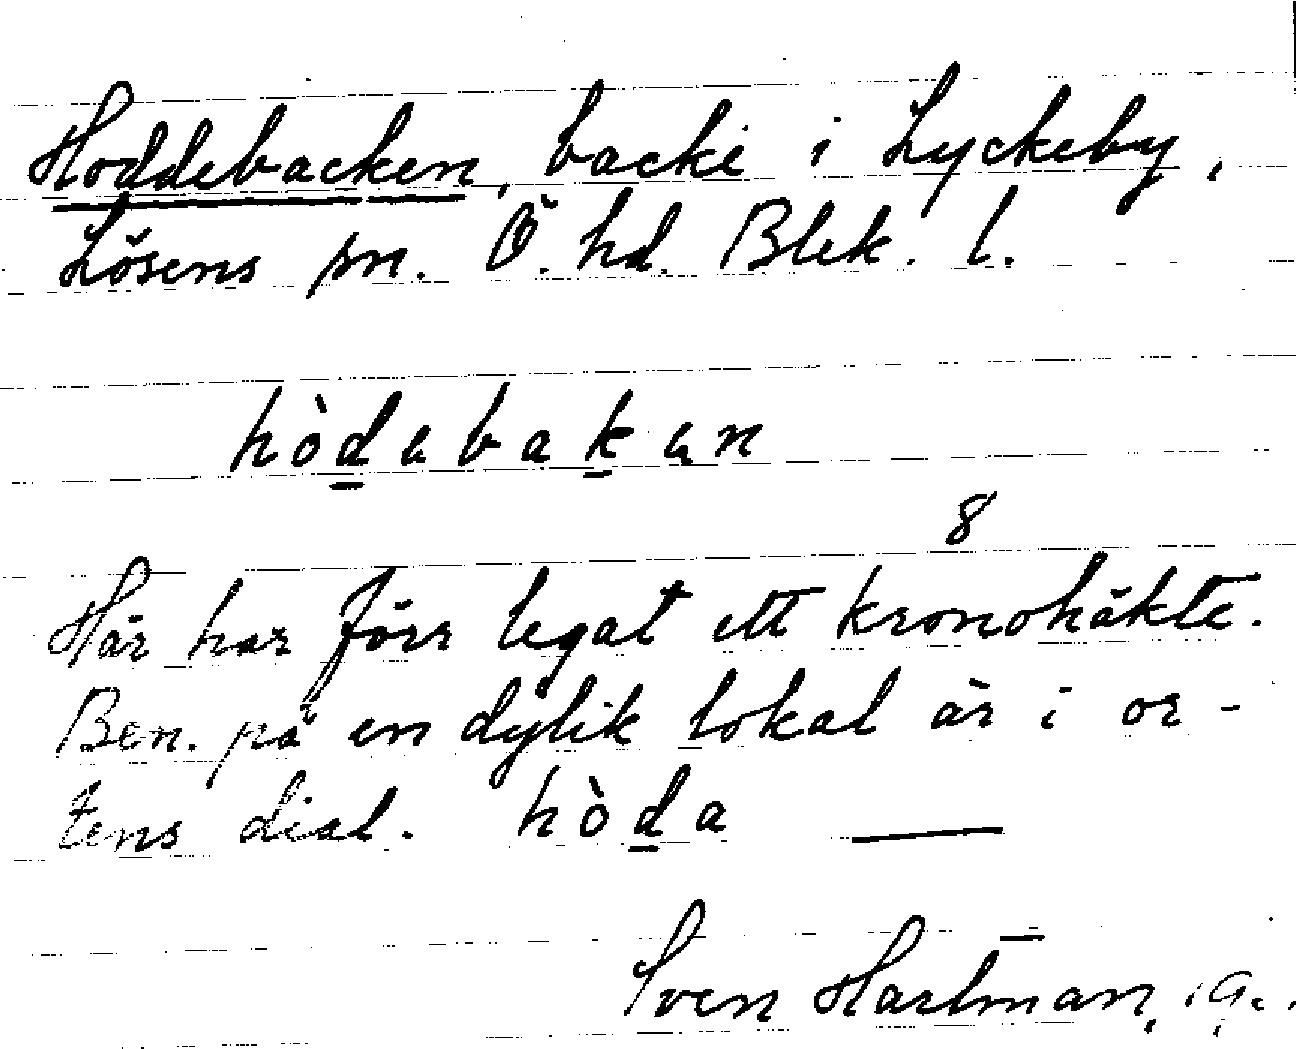 Hoddebacken, backe i Lyckeby,
Lösens sn. Ö. hd. Blek. l.
hòdebakan
8
Här har förr legat ett kronohäkte.
Ben. på en dylik lokal är i or-
tens dial. hòda
Sven Hartman,